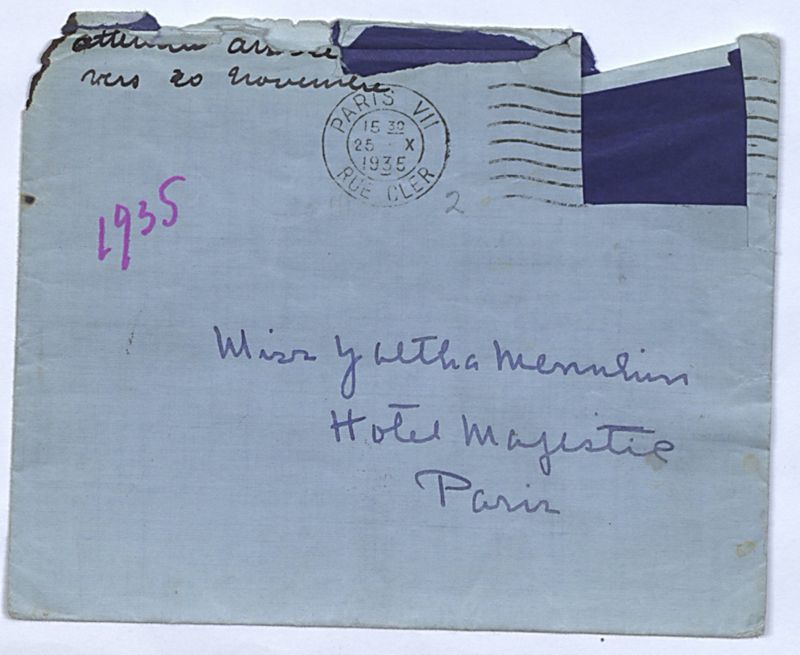 attendre arrivée
vers 20 Novembre
PARIS VII
15 30
25 - X
1935
RUE CLER
2
1935
Miss Yaltha Menuhin
Hotel Majestic
Paris